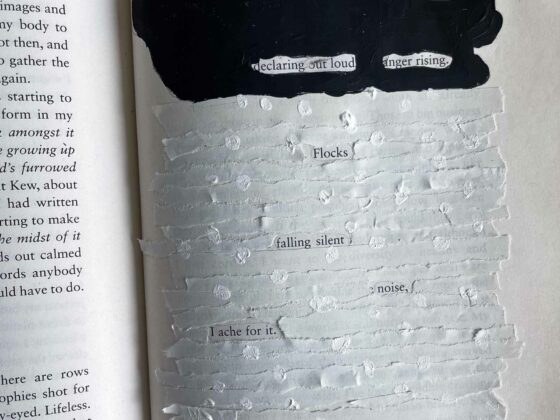 images and
my body to
ot then, and
o gather the
gain.
starting to
form in my
amongst it
e growing up
d's furrowed
t Kew, about
had written
rting to make
he midst of it
ds out calmed
ords anybody
uld have to do.
here are rows
ophies shot for
y-eyed. Lifeless.
declaring out loud anger rising.
Flocks
falling silent
noise,
I ache for it.